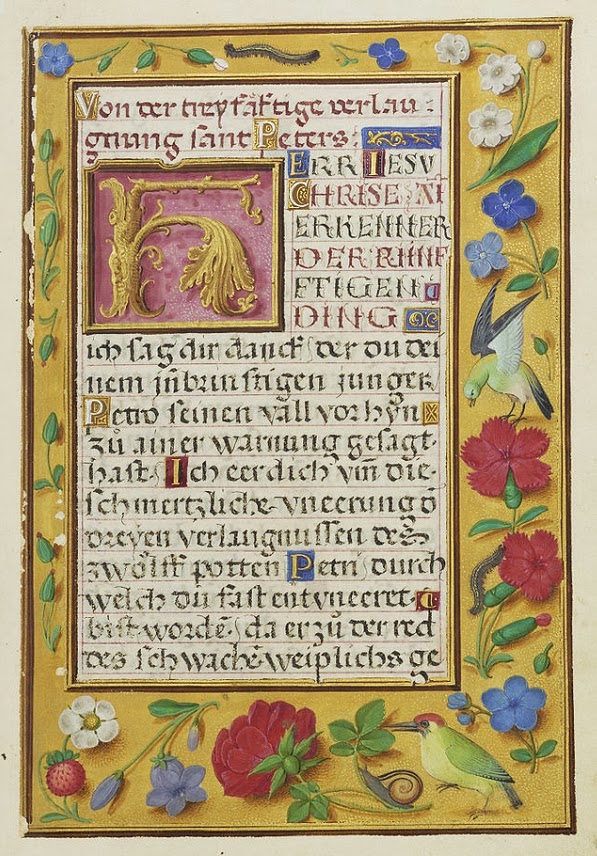 Von der treyfäftige verlau:
gnung sant Peters:
H ERR IESV
CHRISE AI
ERKENNER
DER KINF
FTIGEN
DING
ich sag dir danck der du dei
nem jnbrunstigen junger
Petro seinen väll vor hÿn
zů ainer warnung gesagt
hast. Ich eer dich vm̄ die
schmertzliche vneerung d
dreyen verlaugnussen des
zwölff potten Petri durch
welch du fast entvneeret
bist wordē. da er zů der red
des schwachē weiplichs ge